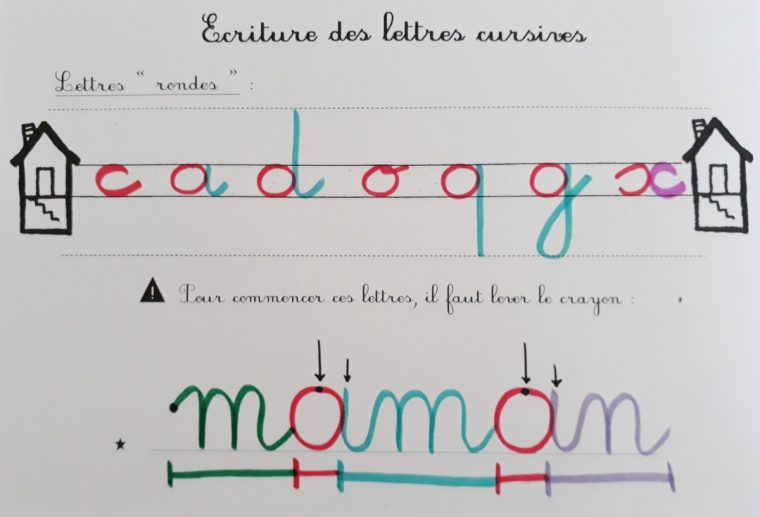 Ecriture des lettres cursives
Lettres " rondes " :
c a d o q g x
Pour commencer ces lettres, il faut lever le crayon :
maman